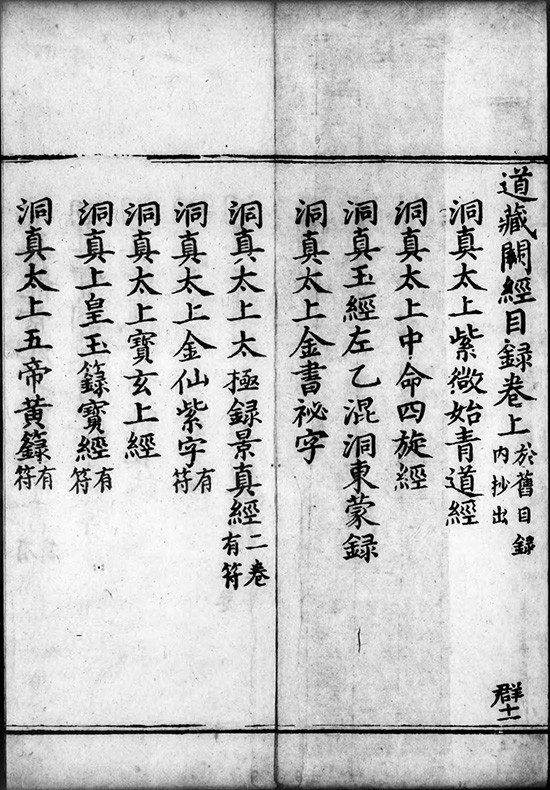 道藏闕經目録卷上於舊目録内抄出
群十一
洞真太上紫微始青道經
洞真太上中命四旋經
洞真玉經左乙混洞東蒙録
洞真太上金書祕字
洞真太上太極録景真經二卷有符
洞真太上金仙紫字有符
洞真太上寶玄上經
洞真上皇玉籙寶經有符
洞真太上五帝黄籙有符